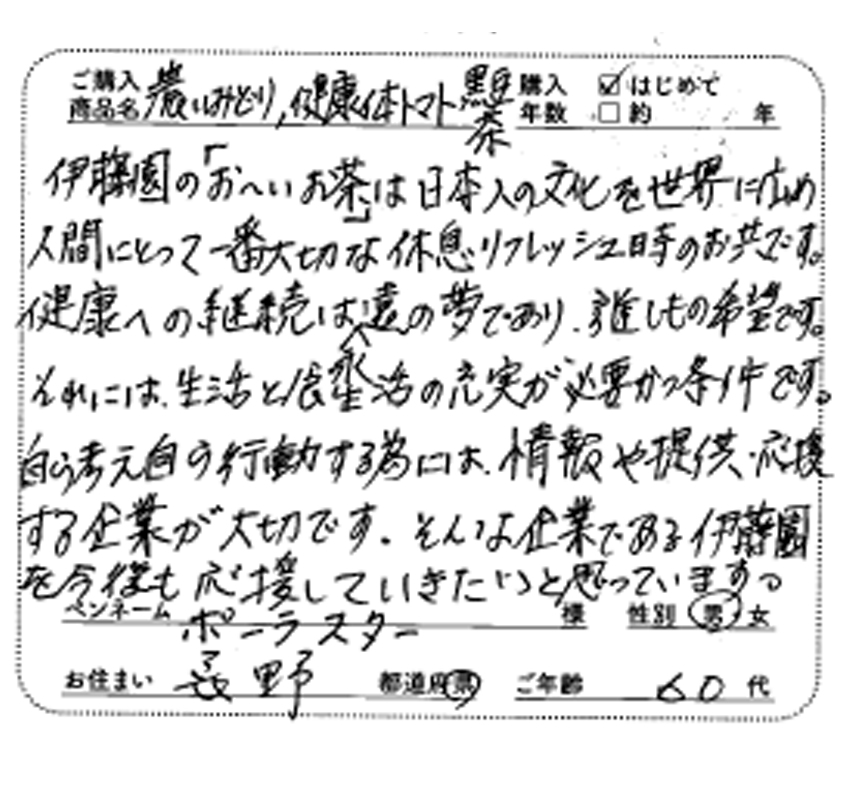 ご購入商品名 濃いみどり,健康体トマト 黒豆茶 購入年数 ☑はじめて □約 年
伊藤園の「お〜いお茶」は日本人の文化を世界に広め
人間にとって一番大切な休息リフレッシュ時のお共です。
健康への継続は永遠の夢であり、誰しもの希望です。
それには、生活と食生活の充実が必要かつ条件です。
自ら考え自ら行動する為には、情報や提供・応援
する企業が大切です。そんな企業である伊藤園
を今後も応援していきたいと思っています。
ペンネーム ポーラスター 様 性別 男・女
お住まい 長野 都道府県 ご年齢 60 代